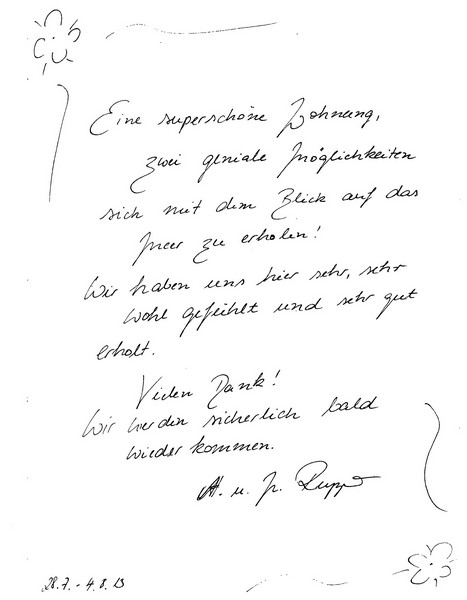 Eine superschöne Wohnung,
zwei geniale Möglichkeiten
sich mit dem Blick auf das
Meer zu erholen!
Wir haben uns hier sehr, sehr
wohl gefühlt und sehr gut
erholt.
Vielen Dank!
Wir werden sicherlich bald
wieder kommen.
A. u. M. Rupp
28.7. - 4.8.13